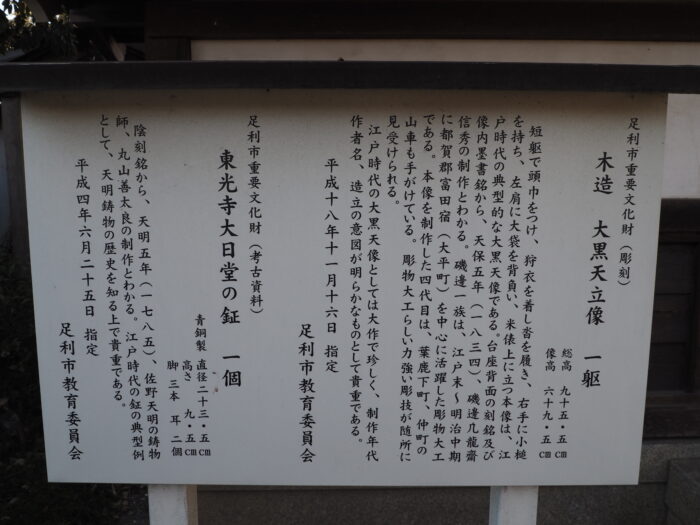 足利市重要文化財(彫刻)
木造 大黒天立像 一躯
総高 九十五・五㎝
像高 六十九・五㎝
短躯で頭巾をつけ、狩衣を着し沓を履き、右手に小槌
を持ち、左肩に大袋を背負い、米俵上に立つ本像は、江
戸時代の典型的な大黒天像である。台座背面の刻銘及び
像内墨書銘から、天保五年(一八三四)、磯邊凡龍齋
信秀の制作とわかる。磯邊一族は、江戸末~明治中期
に都賀郡富田宿(大平町)を中心に活躍した彫物大工
である。本像を制作した四代目は、葉鹿下町、仲町の
山車も手がけている。彫物大工らしい力強い彫技が随所に
見受けられる。
江戸時代の大黒天像としては大作で珍しく、制作年代
作者名、造立の意図が明らかなものとして貴重である。
平成十八年十一月十六日 指定
足利市教育委員会
足利市重要文化財(考古資料)
東光寺大日堂の鉦 一個
青銅製 直径二十三・五㎝
高さ 九・五㎝
脚 三本 耳 二個
陰刻銘から、天明五年(一七八五)、佐野天明の鋳物
師、丸山善太良の制作とわかる。江戸時代の鉦の典型例
として、天明鋳物の歴史を知る上で貴重である。
平成四年六月二十五日 指定
足利市教育委員会